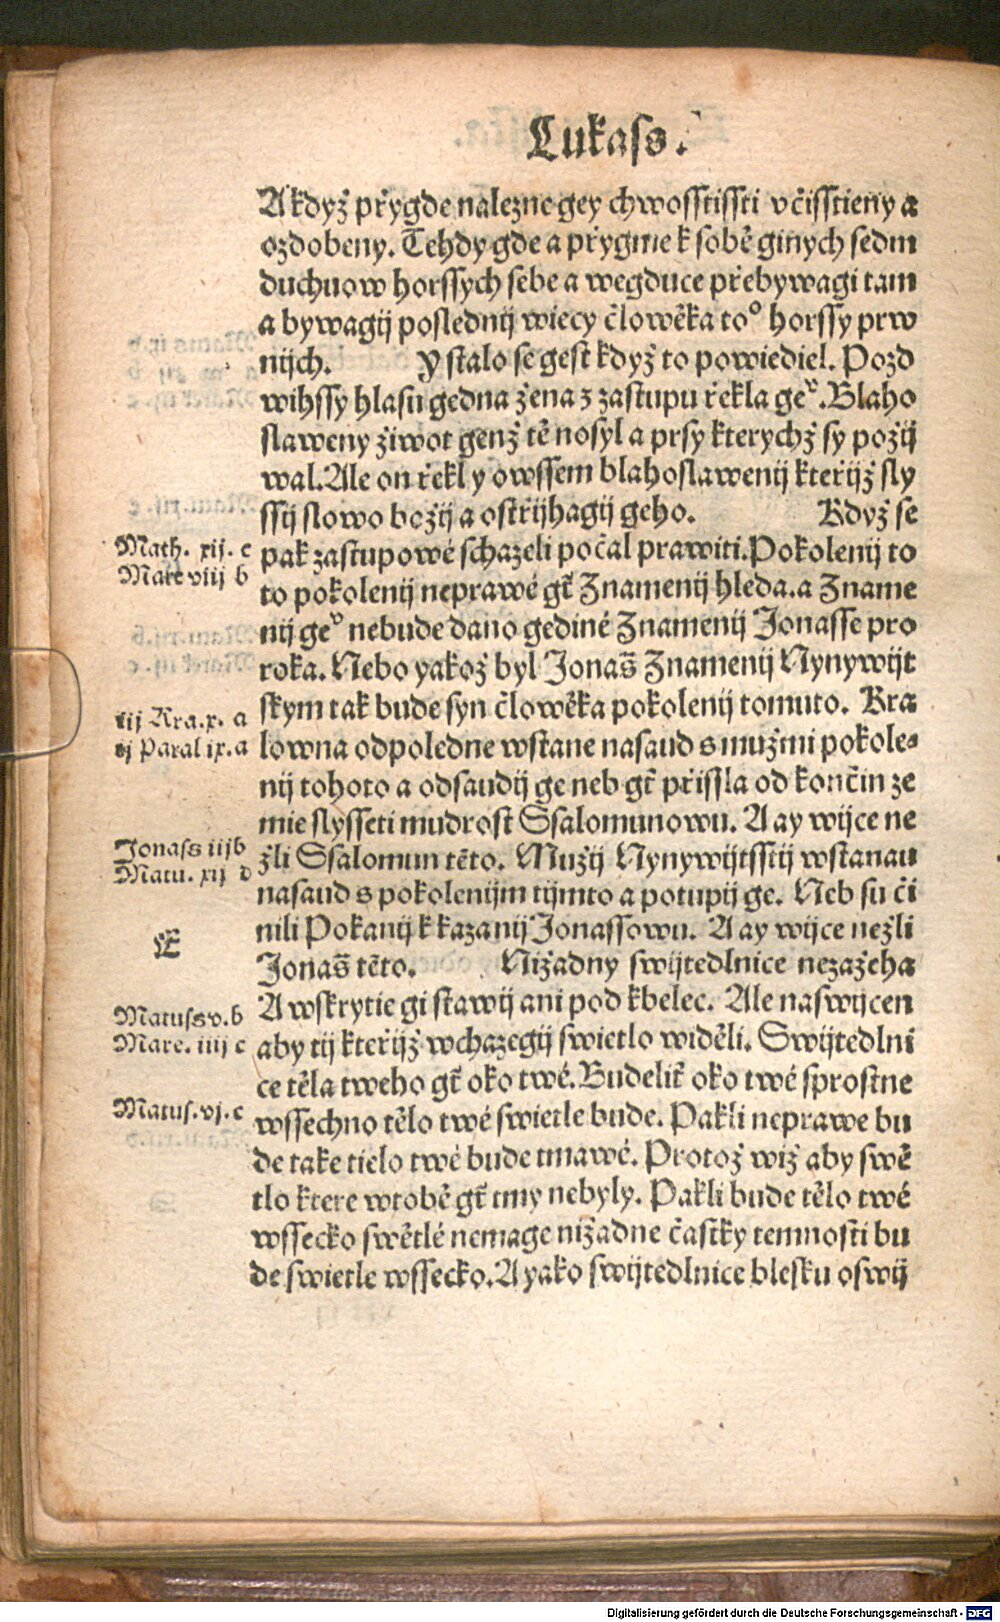 Lukass.
A když přygde nalezne gey chwosstissti včisstieny a
ozdobeny. Tehdy gde a přygme k sobě ginych sedm
duchuow horssych sebe a wegduce přebywagi tam
a bywagij poslednij wiecy člowěka toº horssy prw
nijch. Y stalo se gest když to powiediel. Pozd
wihssy hlasu gedna žena z zastupu řekla geͮ. Blaho
slaweny žiwot genž tě nosyl a prsy kterychž sy požij
wal. Ale on řekl y owssem blahoslawenij kteřijž sly
ssij slowo božij a ostřijhagij geho. Když se
Math. xij. c
Mare viij b
pak zastupowé schazeli počal prawiti. Pokolenij to
to pokolenij neprawé gt̄ Znamenij hleda. a Zname
nij geͮ nebude dano gediné Znamenij Jonasse pro
roka. Nebo yakož byl Jonas̄ Znamenij Nynywijt
skym tak bude syn člowěka pokolenij tomuto. Kra
iij Kra. x. a
ij Paral ix. a
lowna odpoledne wstane nasaud s mužmi pokole-
nij tohoto a odsaudij ge neb gt̄ přissla od končin ze
mie slysseti mudrost Ssalomunowu. A ay wijce ne
Jonass iij b
Matu. xij d
žli Ssalomun tēto. Mužij Nynywijtsstij wstanau
nasaud s pokolenijm tijmto a potupij ge. Neb su či
E
nili Pokanij k kazanij Jonassowu. A ay wijce nežli
Jonas̄ tēto. Nižadny swijtedlnice nezažeha
A wskrytie gi stawij ani pod kbelec. Ale naswijcen
Matuss v. b
Mare. iiij c
aby tij kteřijž wchazegij swietlo widěli. Swijtedlni
ce těla tweho gt̄ oko twé. Budelit̄ oko twé sprostne
Matus. vj. c
wssechno tělo twé swietle bude. Pakli neprawe bu
de take tielo twé bude tmawé. Protož wiž aby swě
tlo ktere wtobě gt̄ tmy nebyly. Pakli bude tělo twé
wssecko swětlé nemage nižadne častky temnosti bu
de swietle wssecko. A yako swijtedlnice blesku oswij
Digitalisierung gefördert durch die Deutsche Forschungsgemeinschaft - DFG